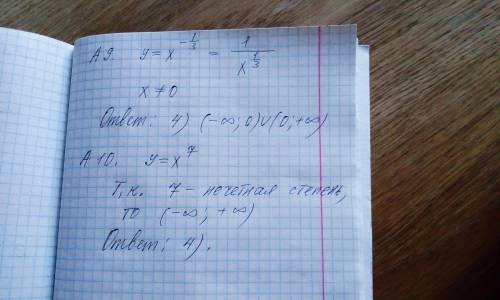 А9. y = x^{-\frac{1}{3}} = \frac{1}{x^{\frac{1}{3}}}
x ≠ 0
Ответ: 4) (-∞; 0)∪(0; +∞)
А10. y = x^7
Т.к. 7 - нечетная степень,
то (-∞; +∞)
Ответ: 4).